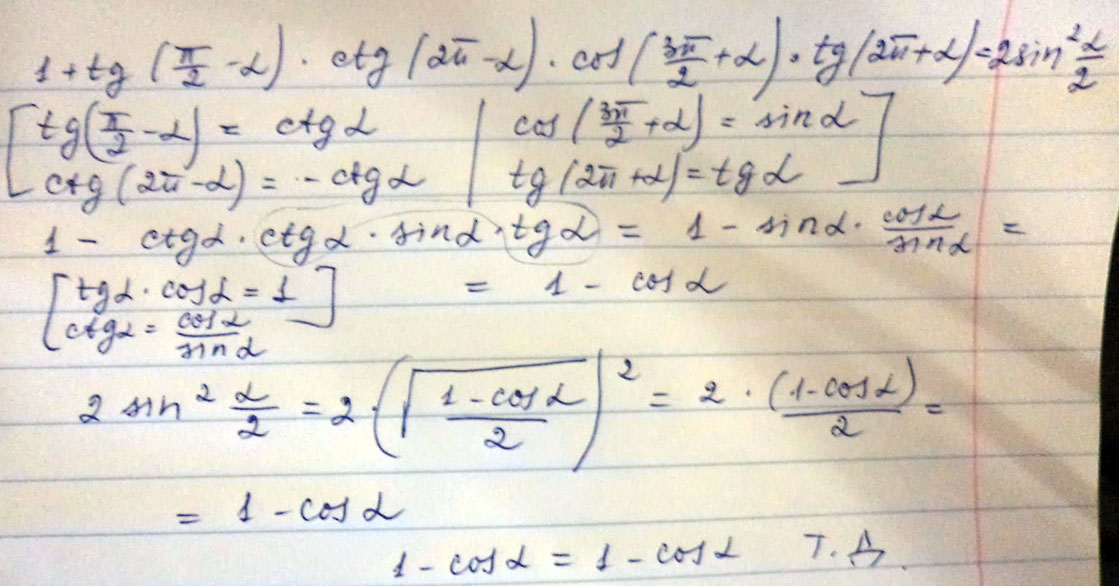 1 + tg (π/2 - α) · ctg (2π - α) · cos (3π/2 + α) · tg (2π + α) = 2 sin² α/2
[ tg (π/2 - α) = ctg α | cos (3π/2 + α) = sin α ]
[ ctg (2π - α) = - ctg α | tg (2π + α) = tg α ]
1 - ctg α · ctg α · sin α · tg α = 1 - sin α · cos α / sin α =
[ tg α · cos α = 1 ] = 1 - cos α
[ ctg α = cos α / sin α ]
2 sin² α/2 = 2 · (√((1 - cos α)/2))² = 2 · (1 - cos α)/2 =
= 1 - cos α
1 - cos α = 1 - cos α Т. Д.